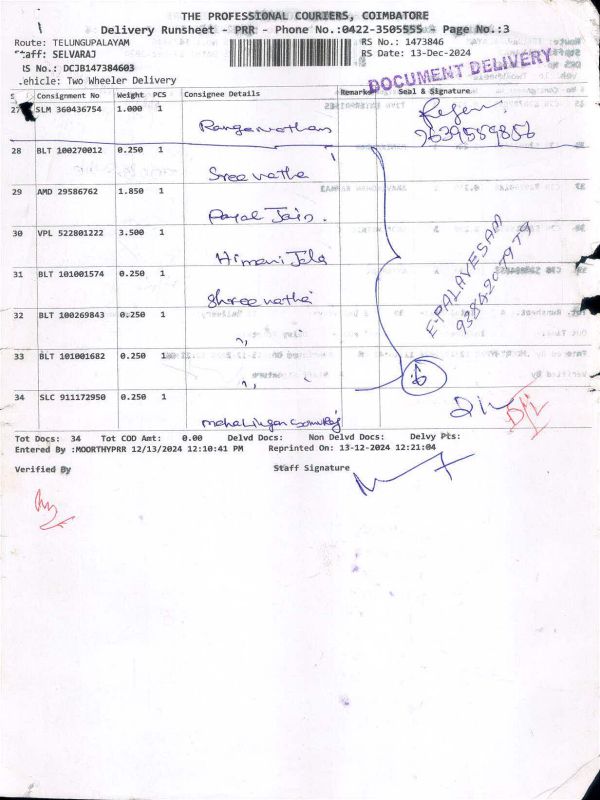 THE PROFESSIONAL COURIERS, COIMBATORE
Delivery Runsheet - PRR - Phone No.:0422-3505555 - Page No.:3
Route: TELUNGUPALAYAM RS No.: 1473846
Staff: SELVARAJ RS Date: 13-Dec-2024
RS No.: DCJB147384603
Vehicle: Two Wheeler Delivery
DOCUMENT DELIVERY
S Consignment No Weight PCS Consignee Details Remarks Seal & Signature
27 SLM 360436754 1.000 1
Ranganathan
28 BLT 100270012 0.250 1
Sreenatha
29 AMD 29586762 1.850 1
Payal Jain.
30 VPL 522801222 3.500 1
Himani Jela
E.PALAVESAM
31 BLT 101001574 0.250 1
Shreenatha
32 BLT 100269843 0.250 1
"
33 BLT 101001682 0.250 1
"
6
34 SLC 911172950 0.250 1
D/L
Tot Docs: 34 Tot COD Amt: 0.00 Delvd Docs: Non Delvd Docs: Delvy Pts:
Entered By :MOORTHYPRR 12/13/2024 12:10:41 PM Reprinted On: 13-12-2024 12:21:04
Verified By Staff Signature